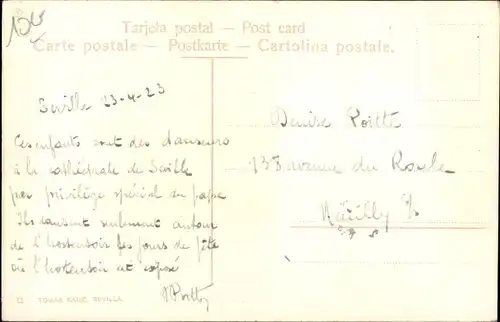 Tarjeta postal — Post card
Carte postale — Postkarte — Cartolina postale.
Seville 23-4-23
Ces enfants sont des danseurs
à la cathédrale de Séville
par privilège spécial du pape
Ils dansent seulement autour
de l'hostensoir les jours de fête
où l'hostensoir est exposé
Denise Poitte
138 avenue du Roule
Neuilly s/
TOMAS SANZ, SEVILLA